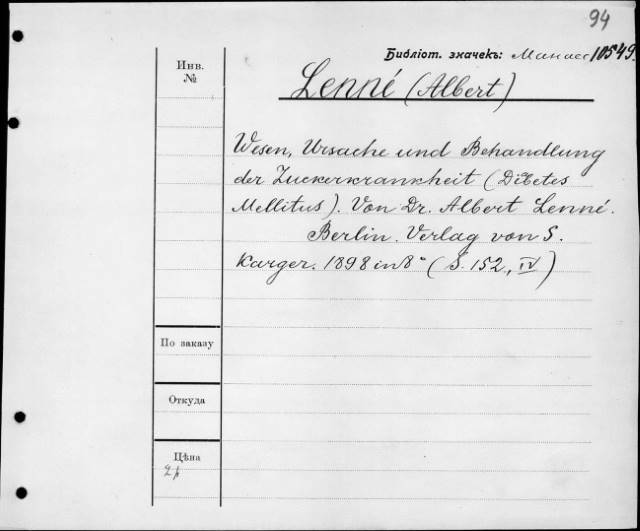 94
Библіот. значекъ: Манасс 10549.
Инв.
№
Lenné (Albert)
Wesen, Ursache und Behandlung
der Zuckerkrankheit (Dibetes
Mellitus). Von Dr. Albert Lenné.
Berlin. Verlag von S.
Karger. 1898 in 8° (S. 152, IV)
По заказу
Откуда
Цѣна